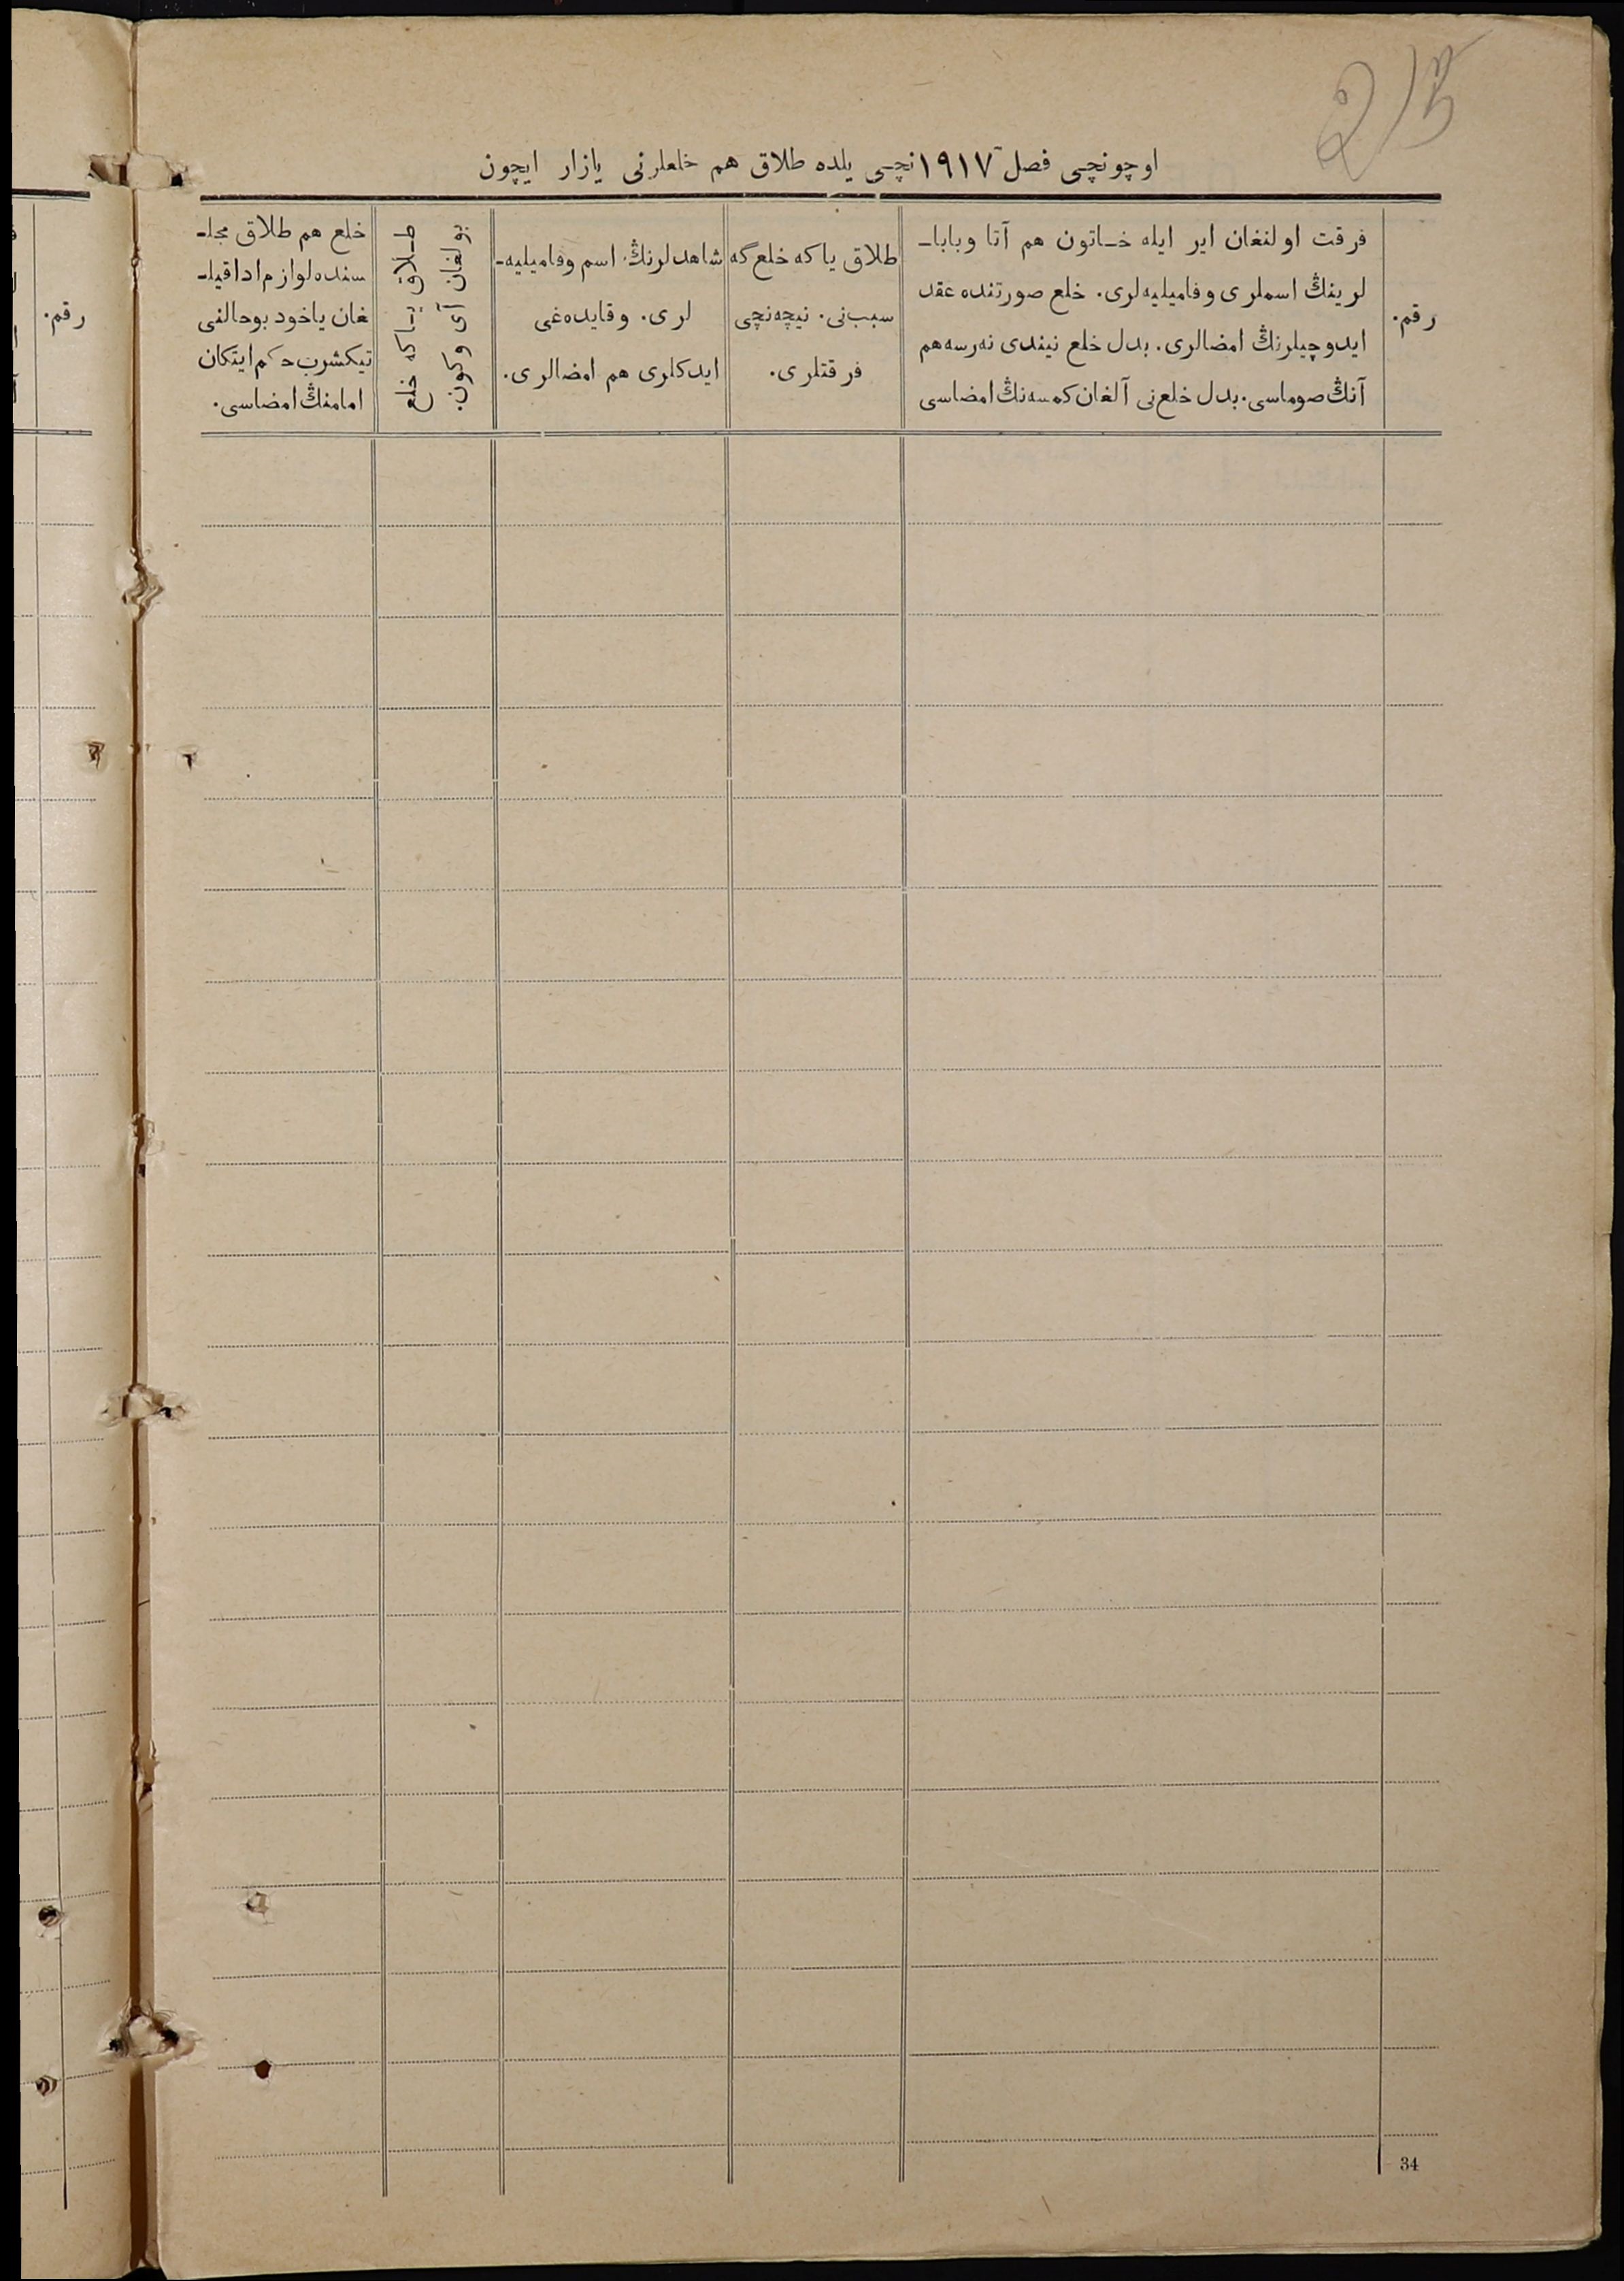 اوچونچی فصل ۱۹۱۷نچی یلده طلاق هم خلعلرنی یازار ایچون
رقم.
فرقت اولنغان ایر ایله خـاتون هم آتا وباباـ
لرینڭ اسملری وفامیلیه‌لری. خلع صورتنده عقد
ایدوچیلرنڭ امضالری. بدل خلع نیندی نه‌رسه‌هم
آنڭ صوماسی. بدل خلع‌نی آلغان کمسه‌نڭ امضاسی
طلاق یا که خلع گه
سبب‌نی. نیچه‌نچی
فرقتلری.
شاهدلرنڭ اسم وفامیلیه‌ـ
لری. وقایده‌غی
ایدکلری هم امضالری.
طـلاق یـاکه خلع
بولغان آی وکون.
خلع هم طلاق مجلـ
سنده لوازم ادا قیلـ
غان یاخود بوحالنی
تیکشرب حکم ایتکان
امامنڭ امضاسی.
34
رقم.